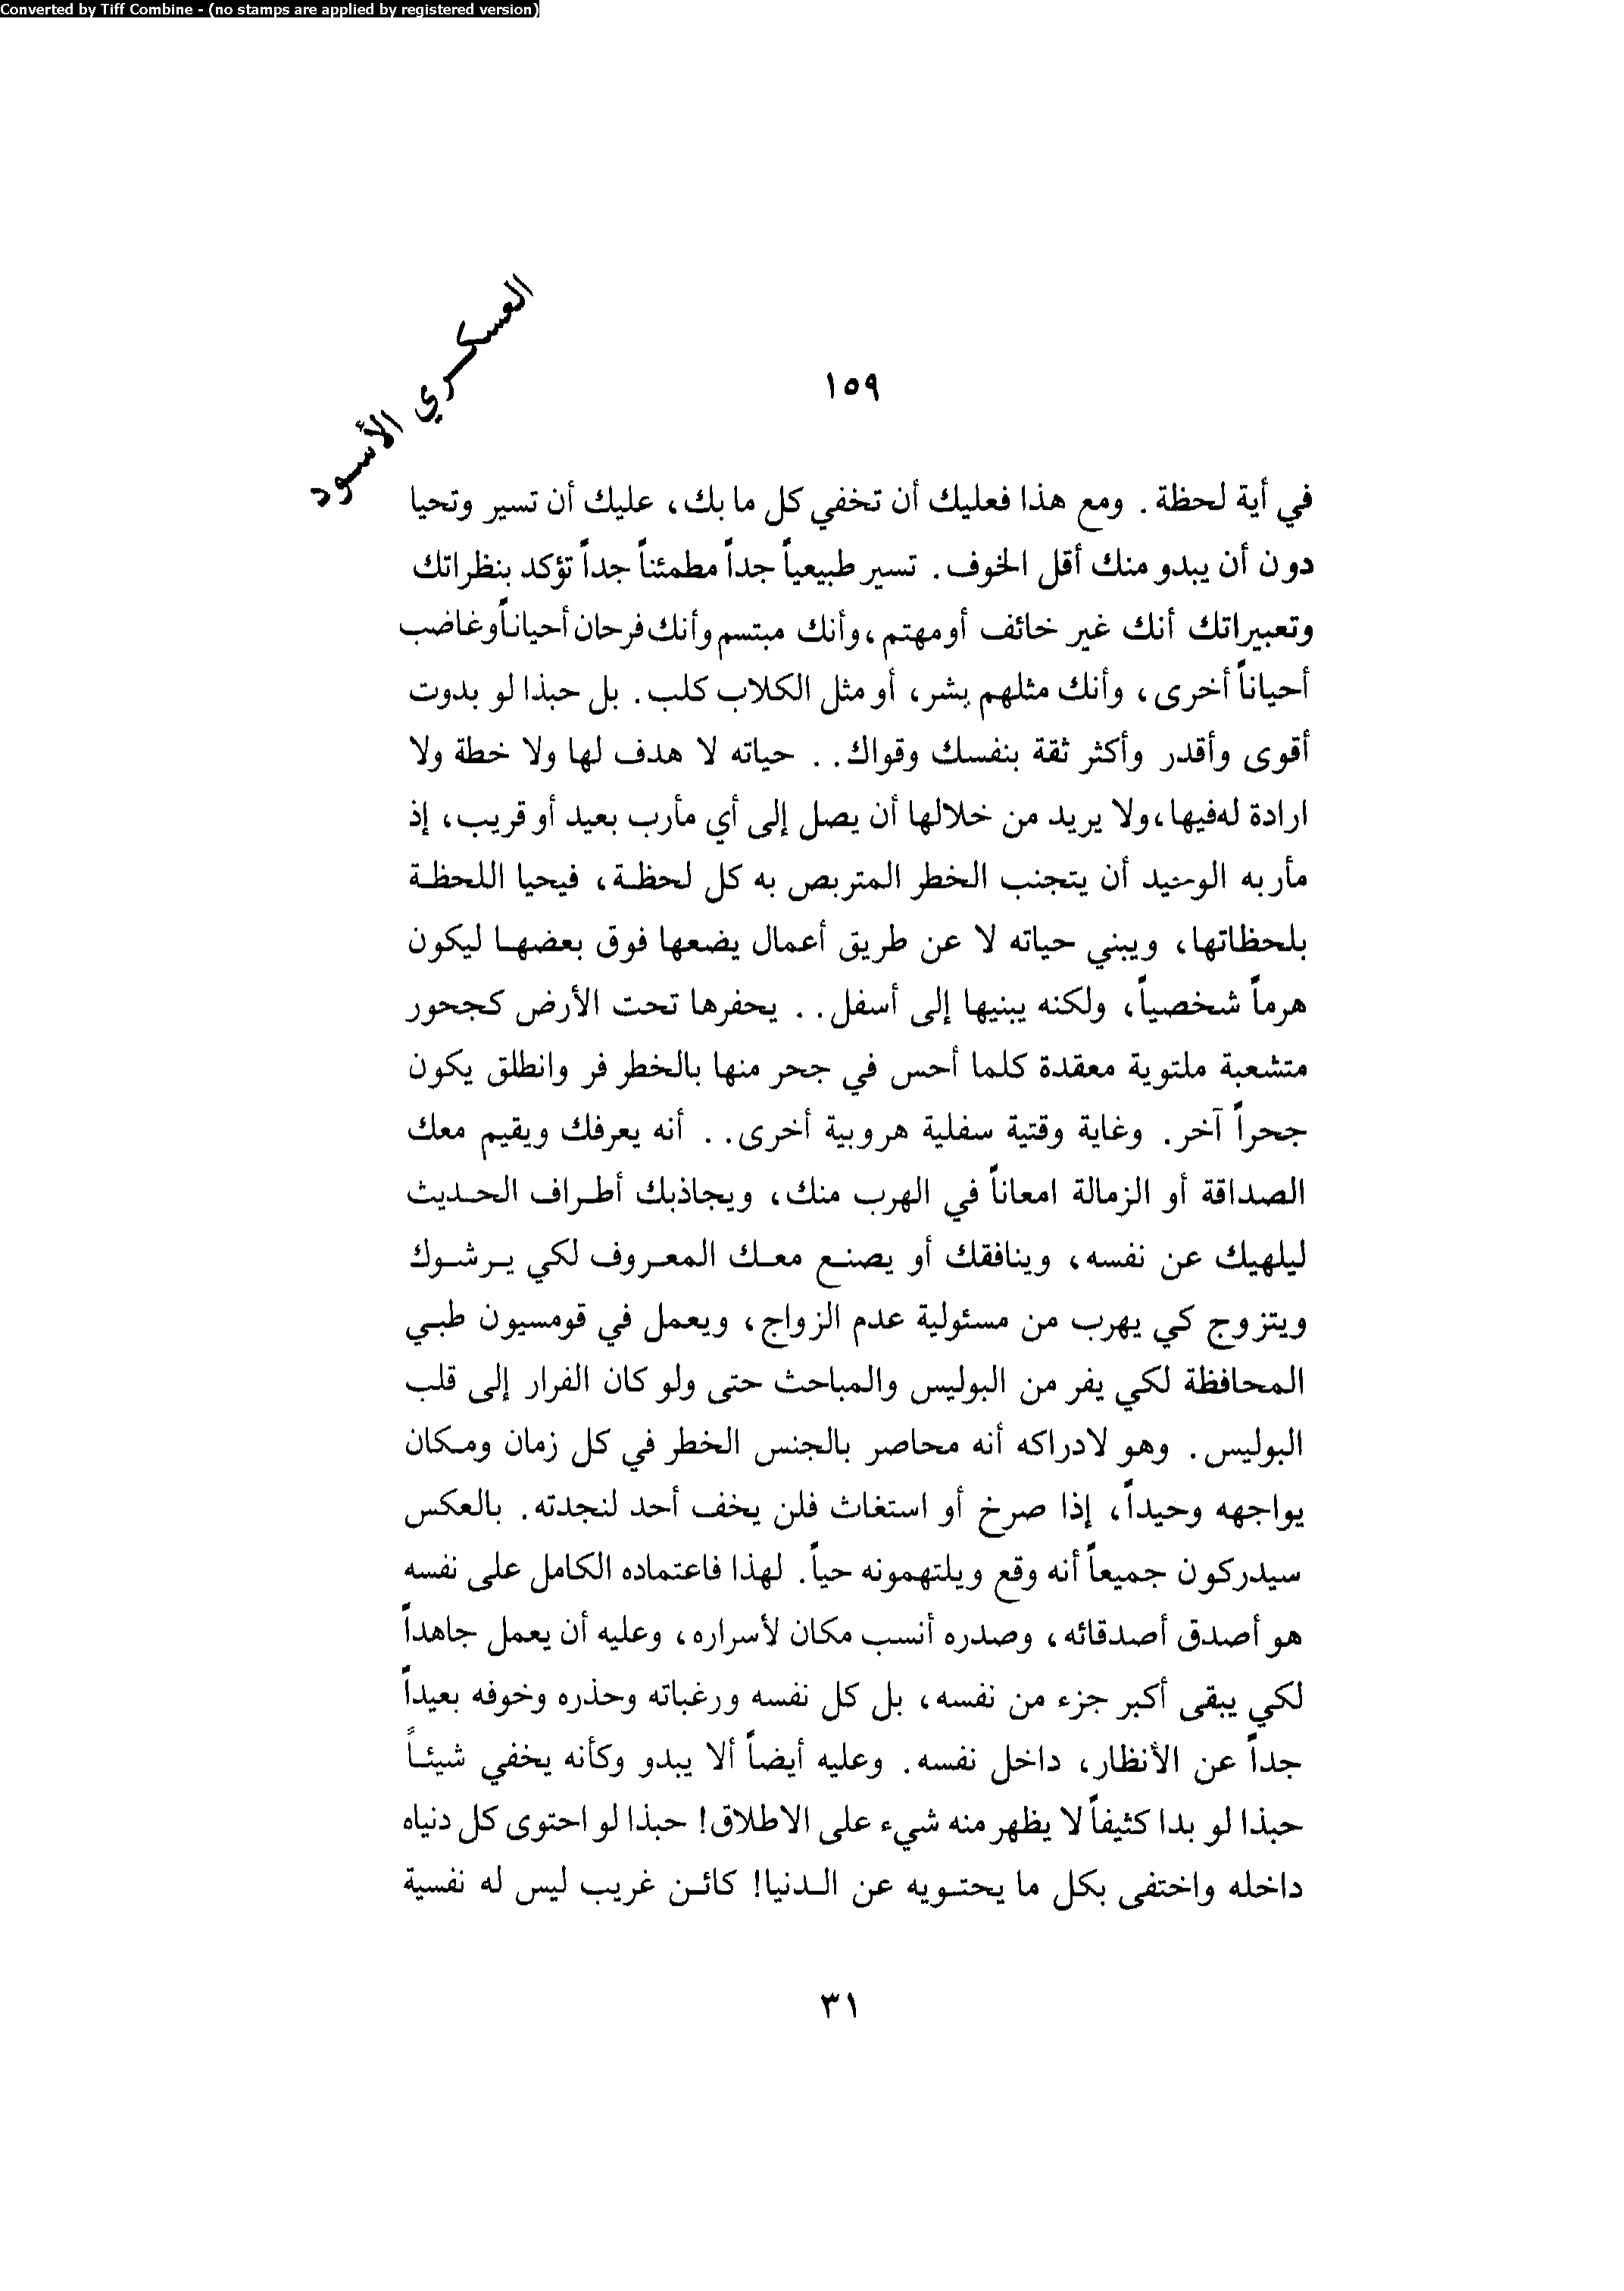 Converted by Tiff Combine - (no stamps are applied by registered version)
العسكري الأسود
١٥٩
في أية لحظة. ومع هذا فعليك أن تخفي كل ما بك، عليك أن تسير وتحيا
دون أن يبدو منك أقل الخوف. تسير طبيعياً جداً مطمئناً جداً تؤكد بنظراتك
وتعبيراتك أنك غير خائف أو مهتم، وأنك مبتسم وأنك فرحان أحياناً وغاضب
أحياناً أخرى، وأنك مثلهم بشر، أو مثل الكلاب كلب. بل حبذا لو بدوت
أقوى وأقدر وأكثر ثقة بنفسك وقواك.. حياته لا هدف لها ولا خطة ولا
ارادة له فيها، ولا يريد من خلالها أن يصل إلى أي مأرب بعيد أو قريب، إذ
مأربه الوحيد أن يتجنب الخطر المتربص به كل لحظة، فيحيا اللحظة
بلحظاتها، ويبني حياته لا عن طريق أعمال يضعها فوق بعضها ليكون
هرماً شخصياً، ولكنه يبنيها إلى أسفل.. يحفرها تحت الأرض كجحور
متشعبة ملتوية معقدة كلما أحس في جحر منها بالخطر فر وانطلق يكون
جحراً آخر. وغاية وقتية سفلية هروبية أخرى.. أنه يعرفك ويقيم معك
الصداقة أو الزمالة امعاناً في الهرب منك، ويجاذبك أطراف الحديث
ليلهيك عن نفسه، وينافقك أو يصنع معك المعروف لكي يرشوك
ويتزوج كي يهرب من مسئولية عدم الزواج، ويعمل في قومسيون طبي
المحافظة لكي يفر من البوليس والمباحث حتى ولو كان الفرار إلى قلب
البوليس. وهو لادراكه أنه محاصر بالجنس الخطر في كل زمان ومكان
يواجهه وحيداً، إذا صرخ أو استغاث فلن يخف أحد لنجدته. بالعكس
سيدركون جميعاً أنه وقع ويلتهمونه حياً. لهذا فاعتماده الكامل على نفسه
هو أصدق أصدقائه، وصدره أنسب مكان لأسراره، وعليه أن يعمل جاهداً
لكي يبقى أكبر جزء من نفسه، بل كل نفسه ورغباته وحذره وخوفه بعيداً
جداً عن الأنظار، داخل نفسه. وعليه أيضاً ألا يبدو وكأنه يخفي شيئاً
حبذا لو بدا كثيفاً لا يظهر منه شيء على الاطلاق! حبذا لو احتوى كل دنياه
داخله واختفى بكل ما يحتويه عن الدنيا! كائن غريب ليس له نفسية
٣١